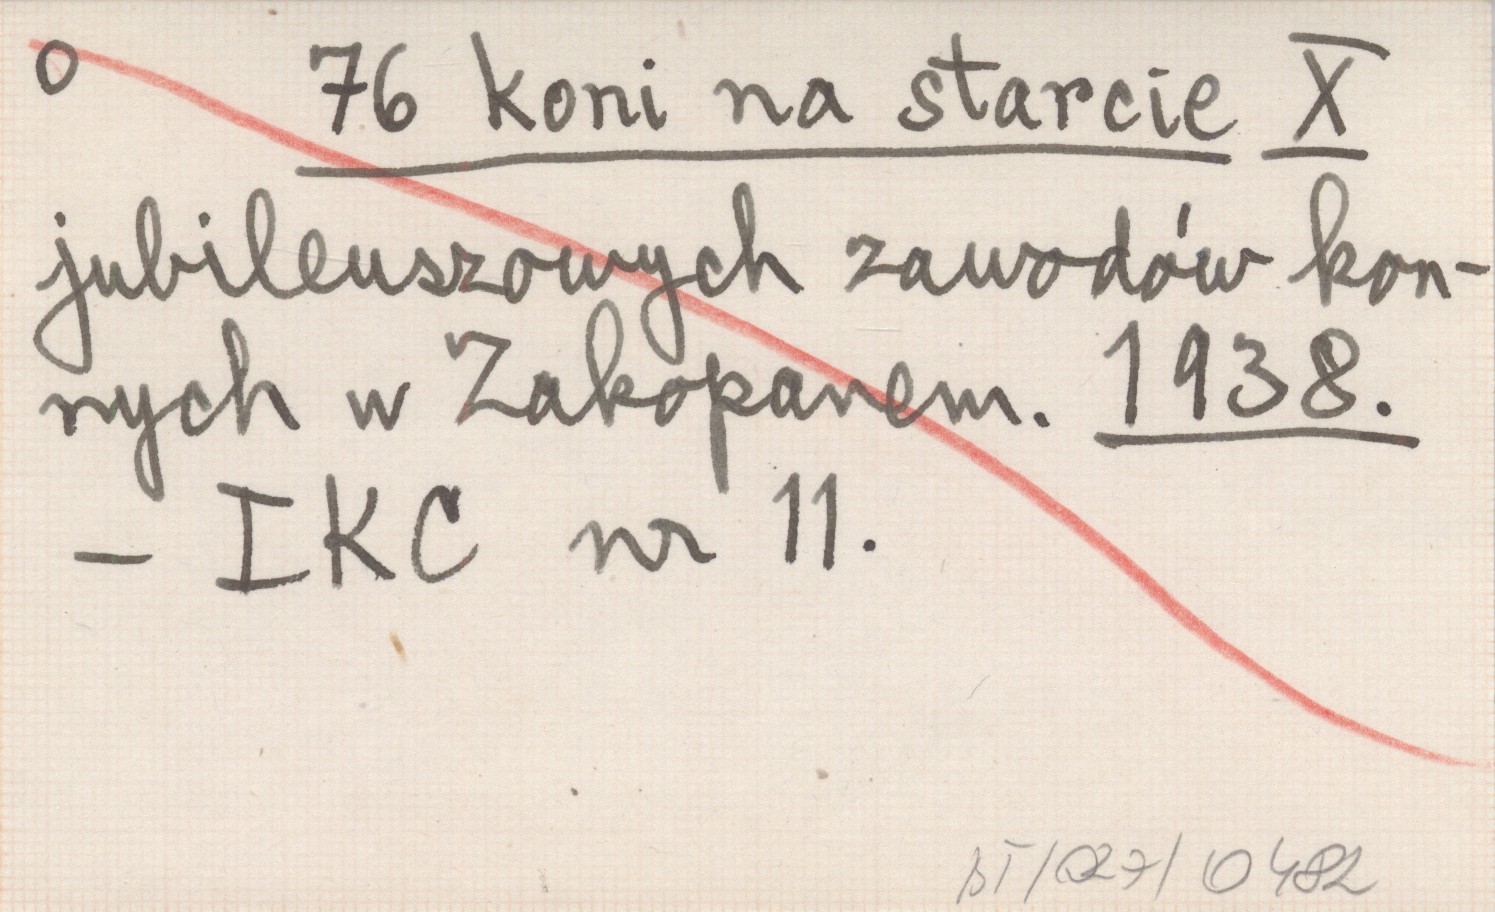 o 76 koni na starcie X
jubileuszowych zawodów kon-
nych w Zakopanem. 1938.
- IKC nr 11.
BT/027/0482